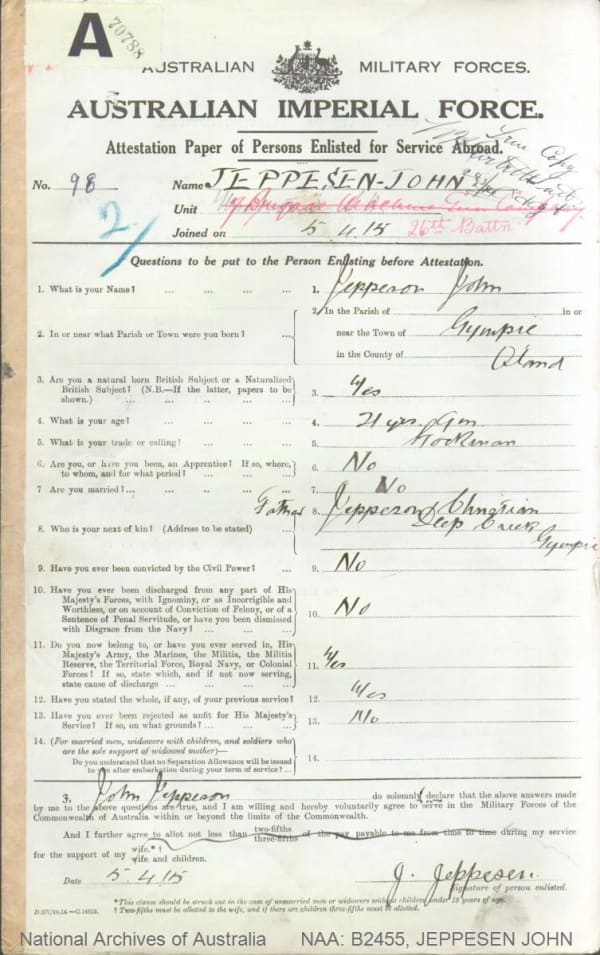 A 70788
AUSTRALIAN MILITARY FORCES.
AUSTRALIAN IMPERIAL FORCE.
Attestation Paper of Persons Enlisted for Service Abroad.
True Copy
No. 98 Name JEPPESEN-JOHN
2
Unit 7 Brigade Machine Gun Company 26th Battn
Joined on 5.4.15
Questions to be put to the Person Enlisting before Attestation.
1. What is your Name? ... ... ... ... 1. Jepperson John
2. In or near what Parish or Town were you born? ... 2. In the Parish of in or
near the Town of Gympie
in the County of Q'land
3. Are you a natural born British Subject or a Naturalized
British Subject? (N.B.—If the latter, papers to be
shown.) ... ... ... ... ... 3. Yes
4. What is your age? ... ... ... ... 4. 21 yrs
5. What is your trade or calling? ... ... ... 5. Stockman
6. Are you, or have you been, an Apprentice? If so, where,
to whom, and for what period? ... ... ... 6. No
7 Are you married?... ... ... ... ... 7. No
Father
8. Who is your next of kin? (Address to be stated) ... 8. Jepperson Christian
Deep Creek
Gympie
9. Have you ever been convicted by the Civil Power? ... 9. No
10. Have you ever been discharged from any part of His
Majesty's Forces, with Ignominy, or as Incorrigible and
Worthless, or on account of Conviction of Felony, or of a
Sentence of Penal Servitude, or have you been dismissed
with Disgrace from the Navy? ... ... ... 10. No
11. Do you now belong to, or have you ever served in, His
Majesty's Army, the Marines, the Militia, the Militia
Reserve, the Territorial Force, Royal Navy, or Colonial
Forces? If so, state which, and if not now serving,
state cause of discharge ... ... ... ... 11. Yes
12. Have you stated the whole, if any, of your previous service? 12. Yes
13. Have you ever been rejected as unfit for His Majesty's
Service? If so, on what grounds? ... ... ... 13. No
14. (For married men, widowers with children, and soldiers who
are the sole support of widowed mother)—
Do you understand that no Separation Allowance will be issued
to you after embarkation during your term of service?... 14.
I, John Jepperson do solemnly declare that the above answers made
by me to the above questions are true, and I am willing and hereby voluntarily agree to serve in the Military Forces of the
Commonwealth of Australia within or beyond the limits of the Commonwealth.
And I further agree to allot not less than two-fifths three-fifths of the pay payable to me from time to time during my service
for the support of my wife.*† wife and children.
Date 5.4.15 J. Jeppesen.
Signature of person enlisted.
*This clause should be struck out in the case of unmarried men or widowers without children under 18 years of age.
† Two-fifths must be allotted to the wife, and if there are children three-fifths must be allotted.
National Archives of Australia NAA: B2455, JEPPESEN JOHN